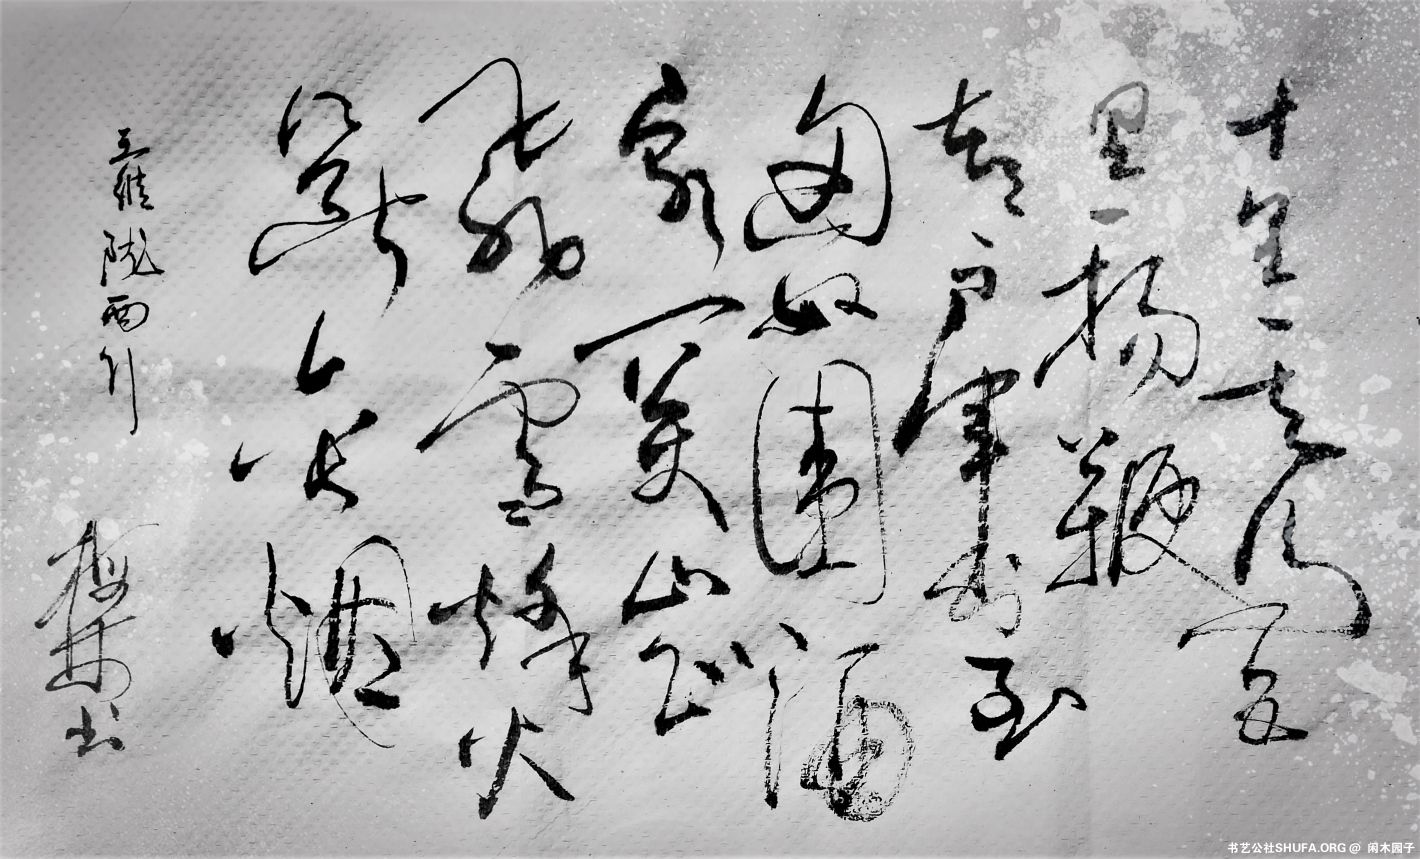 十里一走马五
里一扬鞭
都户军书至
匈奴围酒
泉关山正
飞雪烽火
断无烟
王维陇西行
书
书艺公社SHUFA.ORG @ 闲木园子